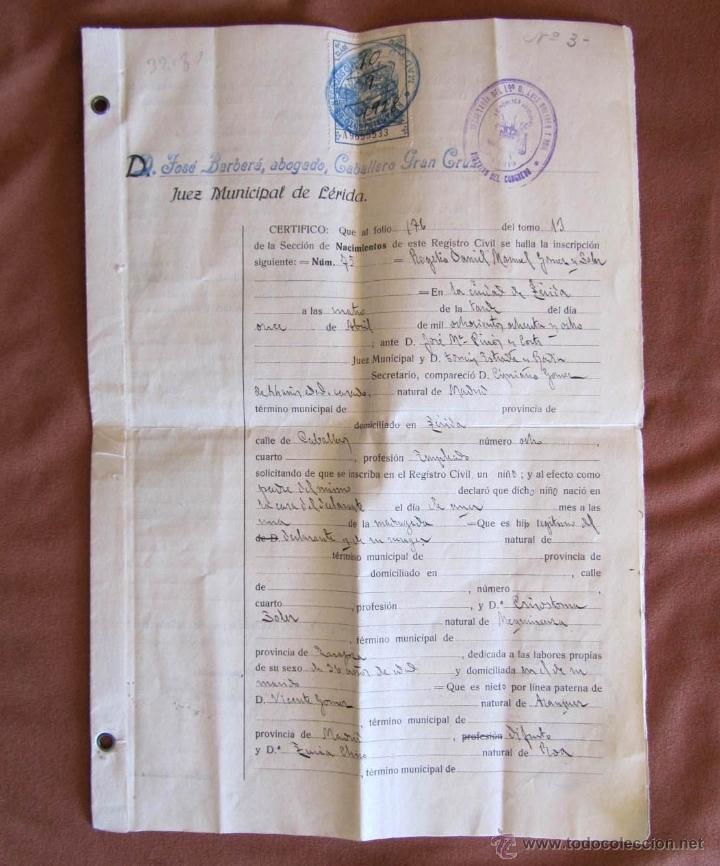 Nº 3-
A9699533
D. José Barberá, abogado, Caballero Gran Cruz
Juez Municipal de Lérida.
CERTIFICO: Que al folio 176 del tomo 13
de la Sección de Nacimientos de este Registro Civil se halla la inscripción
siguiente: = Núm. 75 = Rogelio Daniel Manuel Gomez y Soler
= En la ciudad de Lérida
a las de la tarde del día
once de Abril de mil ochocientos ochenta y ocho
, ante D. José Mª Pinós y Corts
Juez Municipal y D.
Secretario, compareció D. Cipriano Gomez
natural de Madrid
término municipal de provincia de
domiciliado en Lérida
calle de Caballeros número ocho,
cuarto , profesión Empleado
solicitando de que se inscriba en el Registro Civil, un niño; y al efecto como
padre del mismo declaró que dicho niño nació en
la casa del declarante el día mes a las
una de la madrugada = Que es hijo legítimo del
de D. declarante y de su mujer natural de
término municipal de , provincia de
domiciliado en , calle
de , número ,
cuarto , profesión , y D.ª Crisostoma
Soler natural de Mequinenza
, término municipal de
provincia de Zaragoza, dedicada a las labores propias
de su sexo de 36 años de edad y domiciliada en el de su
marido = Que es nieto por línea paterna de
D. Vicente Gomez natural de Aranjuez
, término municipal de
provincia de Madrid, profesión difunto
y D.ª Luisa natural de Roa
, término municipal de
www.todocoleccion.net